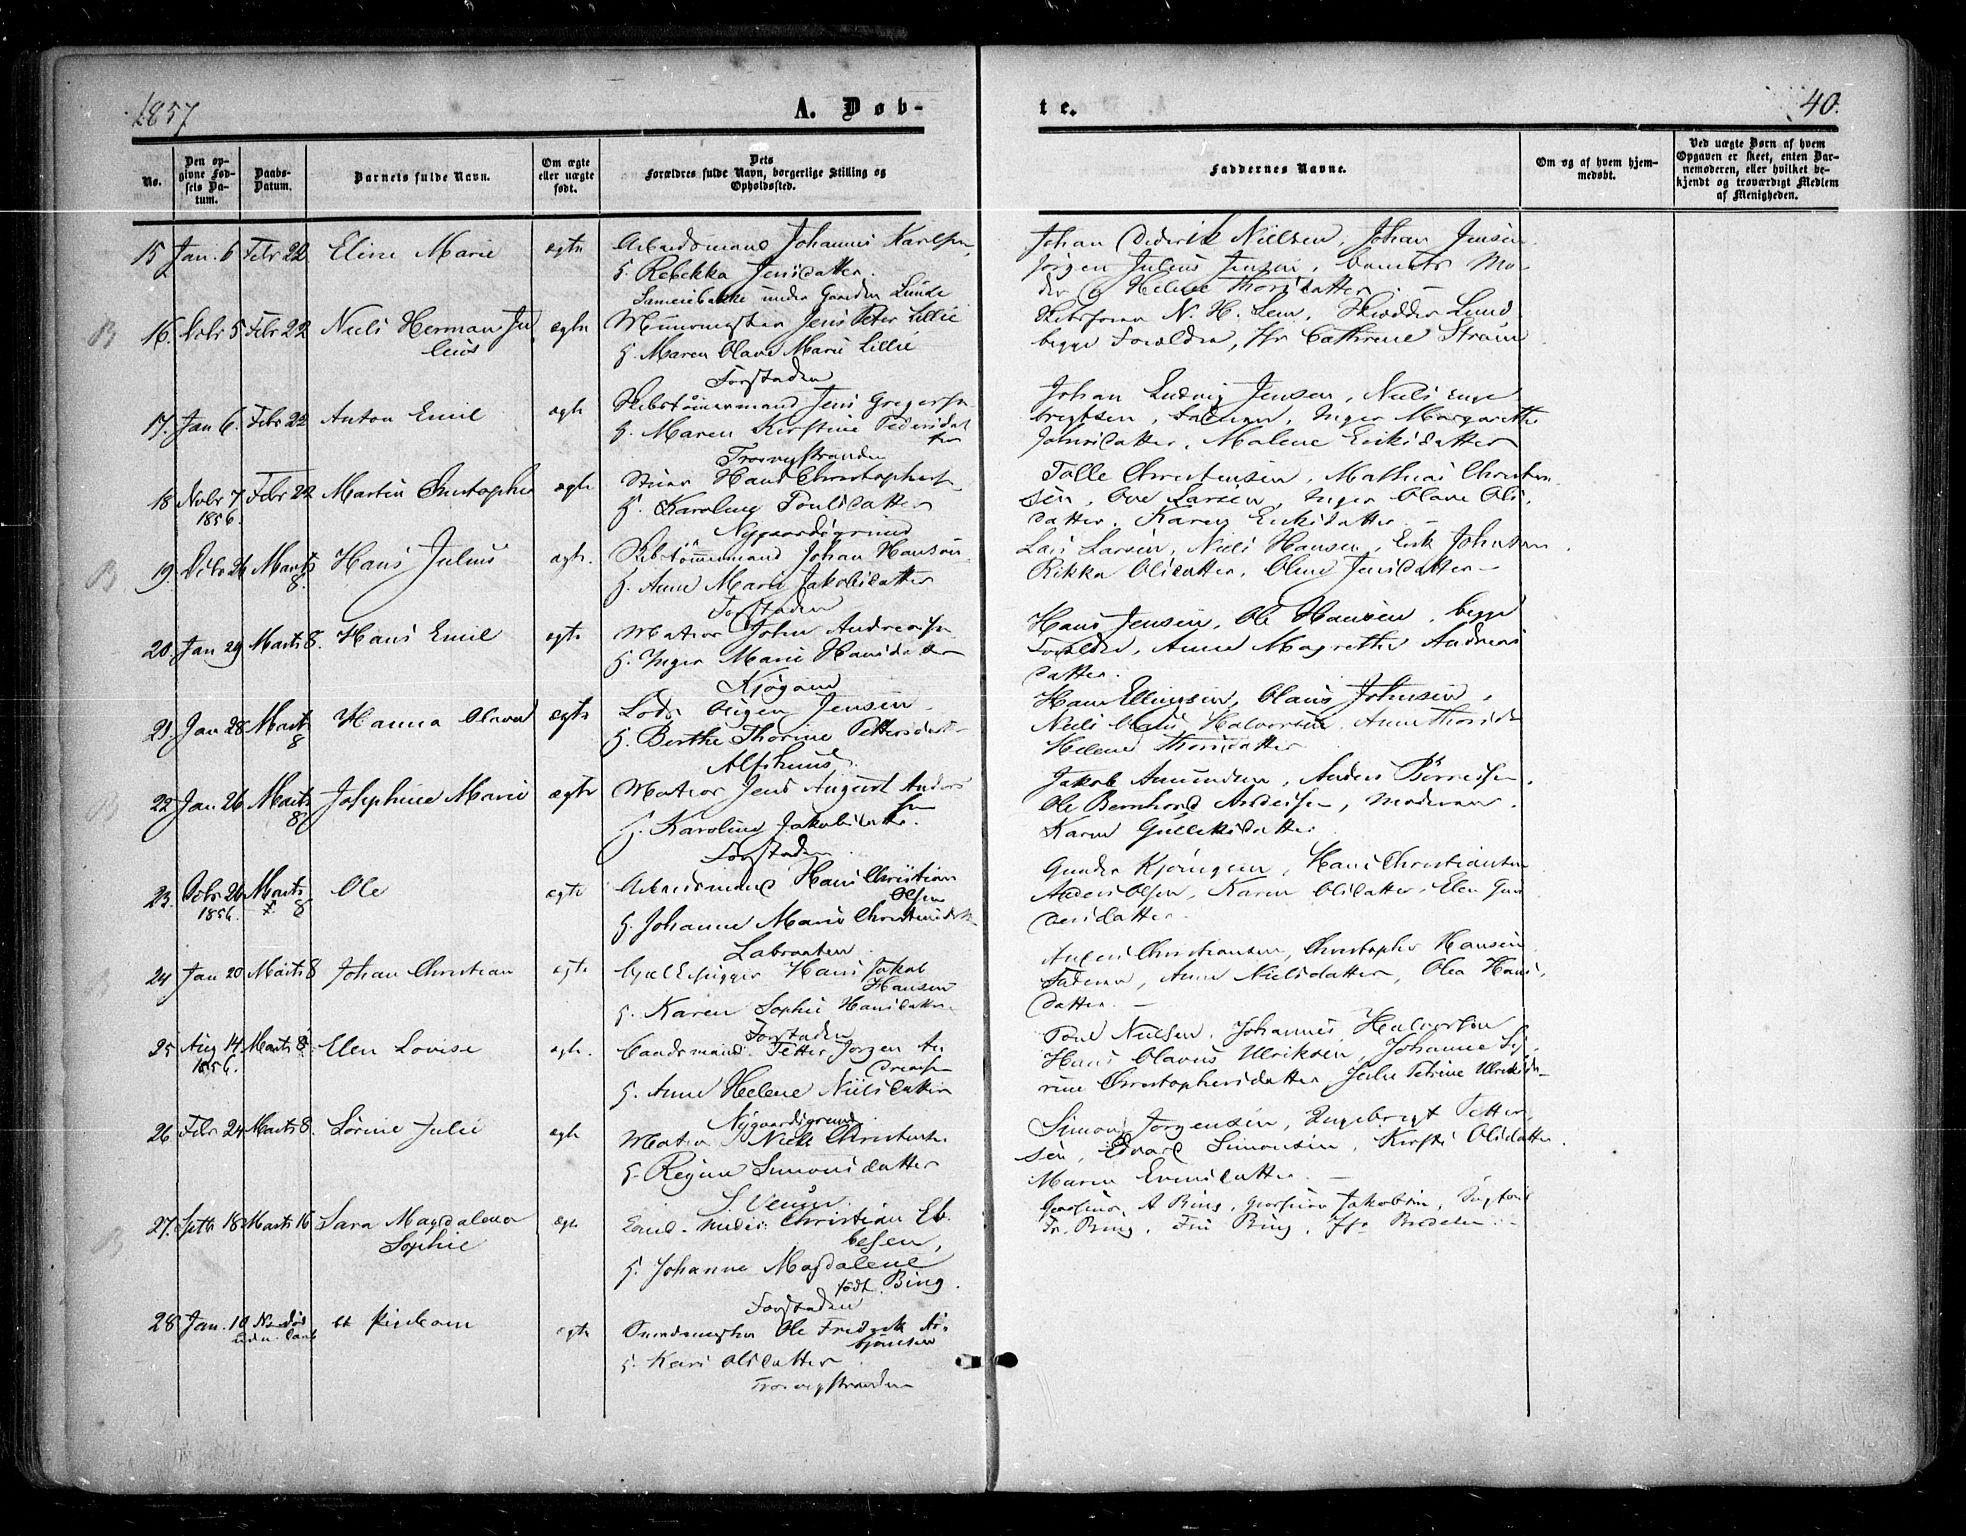 1857
A. Døb-
te.
40.
No.
Den op-
givne Fød-
sels Da-
tum.
Daabs-
Datum.
Barnets fulde Navn.
Om ægte
eller uægte
født.
Dets
Forældres fulde Navn, borgerlige Stilling og
Opholdssted.
Faddernes Navne.
Om og af hvem hjem-
medøbt.
Ved uægte Børn af hvem
Opgaven er skeet, enten Bar-
nemoderen, eller hvilket be-
kjendt og troværdigt Medlem
af Menigheden.
15 Jan. 6 Febr 22 Eline Marie ægte Arbeidsmand Johannes Karlsen,
G. Rebekka Jensdatter.
under Gaarden Lunde
Johan Diderik Nielsen, Johan Jensen
Jørgen Julius Jensen, barnets Mo-
der, Helene Thorsdatter.
B 16. 5 Febr 22 Niels Herman Ju
lius
ægte Muurmester Jens Peter Lillie
G. Maren Olava Marie Lillie
Forstaden
N. H. Lem, Lund
begge Forældre, Fr Cathrine Strøm
17. Jan 6. Febr 22 Anton Emil ægte Skibstømmermand Jens Gregersen
G. Maren Kirstine Pedersdat
ter
Trosvigstranden
Johan Ludvig Jensen, Niels Enge
bregtsen, Faderen, Inger Margarethe
Johnsdatter, Malene Eriksdatter
18 Novbr 7 Febr 22 Martin Christopher ægte Hans Christophersen,
1856.
G. Karoline Poulsdatter
Nygaardsgrund
Tolle Christensen, Mathias Christen
sen, Ove Larsen, Inger Olave Ols
datter. Karen Eriksdatter.
B 19. 26 Marts Hans Julius ægte. Skibstømmermand Johan Hanson
8.
G. Anne Marie Jakobsdatter
Forstaden
Lars Larsen, Niels Hansen, Erik Johnsen
Rikka Olsdatter, Oline Jensdatter
20. Jan 29 Marts 8. Hans Emil ægte Matros John Andreassen
G. Inger Marie Hansdatter
Hans Jensen, Ole Hansen, begge
Forældre, Anne Magrethe Andreas
datter.
21. Jan 28 Marts Hanna Olava ægte Lods Jensen
8
G. Berthe Thorine Pettersdatter
Alshuus
Hans Ellingsen, Olaus Johnsen,
Niels Olaus Halvorsen, Anne
Helene Thorsdatter
B 22 Jan 26 Marts Josephine Marie ægte Matros Jens August Anders
8
sen
G. Karoline Jakobsdatter.
Forstaden
Jakob Amundsen, Anders
Ole Bernhard Andersen, Moderen.
Karen Gulliksdatter
23. 26 Marts Ole ægte Arbeidsmand Hans Christian
1856. 8
Olsen
G. Johanne Marie
Labraaten
Gunder Kjøngsen, Hans Christiansen
Anders Olsen, Karen Olsdatter, Elen Gun
dersdatter.
B 24 Jan 20 Marts 8 Johan Christian ægte Hans Jakob
Hansen
G. Karen Sophie Hansdatter
Forstaden
Anders Christiansen, Christopher Hansen
Faderen, Anne Nielsdatter, Olea Hans
datter.
25 Aug 14 Marts 8. Elen Lovise ægte. Baadsmand Petter Jørgen An
1856.
dreasen
G. Anne Helene Nielsdatter
Nygaardsgrund
Poul Nielsen, Johannes Halvorsen
Hans Olavus Ulriksen, Johanne Se
rine Christophersdatter Julie Petrine Ulriksdr
26 Febr 24 Marts 8. Lorine Julie ægte Matros Niels Christensen
G. Regine Simonsdatter
Simon Jørgensen, Engebregt Petter
sen, Edvard Simonsen, Kirsti Olsdatter
Maren Evensdatter.
B 27. Septb 18 Marts 16 Sara Magdalena
Sophie
ægte Christian Eb
besen,
G. Johanne Magdalene
født Bing.
Forstaden
A Bing, Jakobsen,
Fr. Bing, Frü Bing,
28 Jan. 10 et Pigebarn ægte Ole Fredrik As
bjørnsen
G. Kari Olsdatter
Trosvigstranden